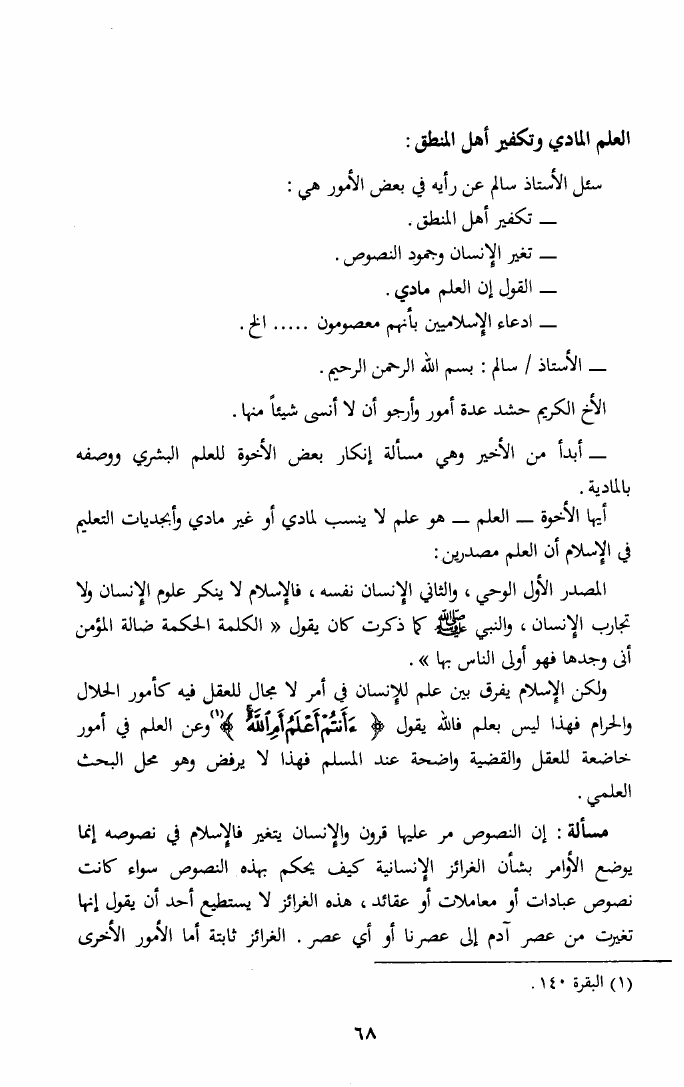 العلم المادي وتكفير أهل المنطق :
سئل الأستاذ سالم عن رأيه في بعض الأمور هي :
ــ تكفير أهل المنطق .
ــ تغير الإنسان وجمود النصوص .
ــ القول إن العلم مادي .
ــ ادعاء الإسلاميين بأنهم معصومون ..... الخ .
ــ الأستاذ / سالم : بسم الله الرحمن الرحيم .
الأخ الكريم حشد عدة أمور وأرجو أن لا أنسى شيئاً منها .
ــ أبدأ من الأخير وهي مسألة إنكار بعض الأخوة للعلم البشري ووصفه
بالمادية .
أيها الأخوة ــ العلم ــ هو علم لا ينسب لمادي أو غير مادي وأبجديات التعليم
في الإسلام أن العلم مصدرين :
المصدر الأول الوحي ، والثاني الإنسان نفسه ، فالإسلام لا ينكر علوم الإنسان ولا
تجارب الإنسان ، والنبي ﷺ كما ذكرت كان يقول « الكلمة الحكمة ضالة المؤمن
أنى وجدها فهو أولى الناس بها » .
ولكن الإسلام يفرق بين علم للإنسان في أمر لا مجال للعقل فيه كأمور الحلال
والحرام فهذا ليس بعلم فالله يقول ﴿ ءَأَنتُمْ أَعْلَمُ أَمِ ٱللَّهُ ﴾(١) وعن العلم في أمور
خاضعة للعقل والقضية واضحة عند المسلم فهذا لا يرفض وهو محل البحث
العلمي .
مسألة : إن النصوص مر عليها قرون والإنسان يتغير فالإسلام في نصوصه إنما
يوضع الأوامر بشأن الغرائز الإنسانية كيف يحكم بهذه النصوص سواء كانت
نصوص عبادات أو معاملات أو عقائد ، هذه الغرائز لا يستطيع أحد أن يقول إنها
تغيرت من عصر آدم إلى عصرنا أو أي عصر . الغرائز ثابتة أما الأمور الأخرى
(١) البقرة ١٤٠ .
٦٨